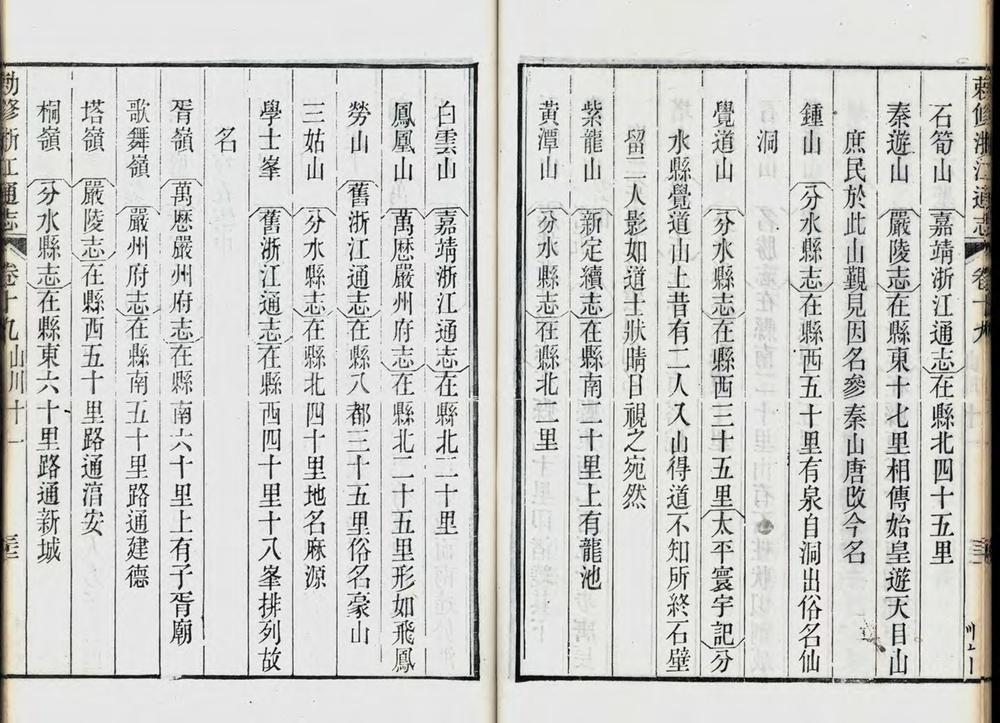 敕修浙江通志 卷十九
石筍山 嘉靖浙江通志在縣北四十五里
秦遊山 嚴陵志在縣東十七里相傳始皇遊天目山
庶民於此山觀見因名參秦山唐改今名
鍾山 分水縣志在縣西五十里有泉自洞出俗名仙
洞
覺道山 分水縣志在縣西三十五里太平寰宇記分
水縣覺道山上昔有二人入山得道不知所終石壁
留二人影如道士狀晴日視之宛然
紫龍山 新定續志在縣南二十里上有龍池
黃潭山 分水縣志在縣北一里
白雲山 嘉靖浙江通志在縣北二十里
鳳凰山 萬歷嚴州府志在縣北二十五里形如飛鳳
勞山 舊浙江通志在縣八都三十五里俗名豪山
三姑山 分水縣志在縣北四十里地名麻源
學士峯 舊浙江通志在縣西四十里十八峯排列故
名
胥嶺 萬歷嚴州府志在縣南六十里上有子胥廟
歌舞嶺 嚴州府志在縣南五十里路通建德
塔嶺 嚴陵志在縣西五十里路通淯安
桐嶺 分水縣志在縣東六十里路通新城
勅修浙江通志 卷十九 山川十一